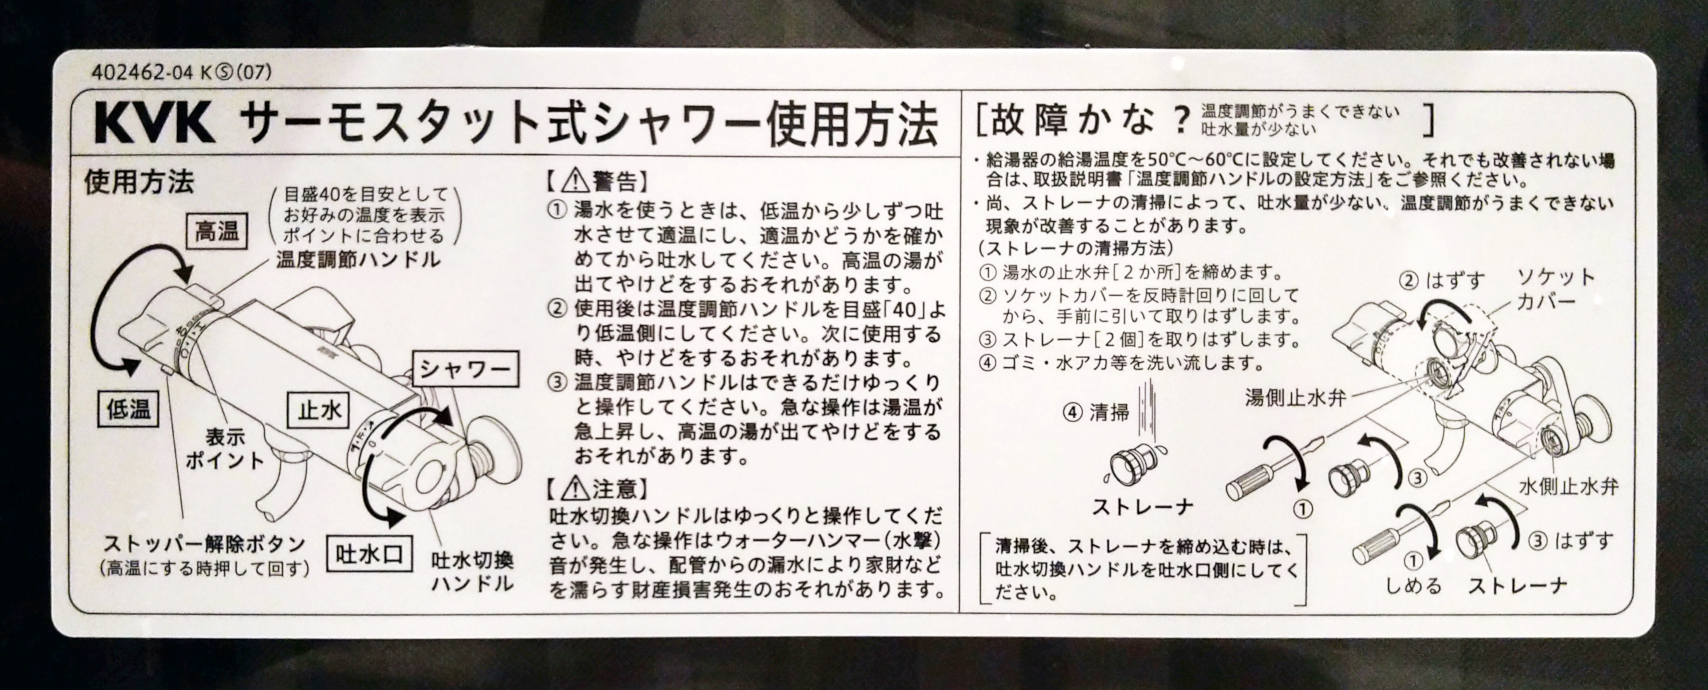 402462-04 KⓈ(07)
KVK サーモスタット式シャワー使用方法
使用方法
(目盛40を目安として
お好みの温度を表示
ポイントに合わせる)
高温
温度調節ハンドル
低温
表示
ポイント
止水
シャワー
ストッパー解除ボタン
(高温にする時押して回す)
吐水口
吐水切換
ハンドル
【⚠警告】
① 湯水を使うときは、低温から少しずつ吐
水させて適温にし、適温かどうかを確か
めてから吐水してください。高温の湯が
出てやけどをするおそれがあります。
② 使用後は温度調節ハンドルを目盛「40」よ
り低温側にしてください。次に使用する
時、やけどをするおそれがあります。
③ 温度調節ハンドルはできるだけゆっくり
と操作してください。急な操作は湯温が
急上昇し、高温の湯が出てやけどをする
おそれがあります。
【⚠注意】
吐水切換ハンドルはゆっくりと操作してくだ
さい。急な操作はウォーターハンマー(水撃)
音が発生し、配管からの漏水により家財など
を濡らす財産損害発生のおそれがあります。
[故障かな? 温度調節がうまくできない
吐水量が少ない ]
・給湯器の給湯温度を50℃〜60℃に設定してください。それでも改善されない場
合は、取扱説明書「温度調節ハンドルの設定方法」をご参照ください。
・尚、ストレーナの清掃によって、吐水量が少ない。温度調節がうまくできない
現象が改善することがあります。
(ストレーナの清掃方法)
① 湯水の止水弁[2か所]を締めます。
② ソケットカバーを反時計回りに回して
から、手前に引いて取りはずします。
③ ストレーナ[2個]を取りはずします。
④ ゴミ・水アカ等を洗い流します。
② はずす
ソケット
カバー
湯側止水弁
④ 清掃
ストレーナ
①
③
水側止水弁
①
しめる
③ はずす
ストレーナ
[清掃後、ストレーナを締め込む時は、
吐水切換ハンドルを吐水口側にしてく
ださい。]